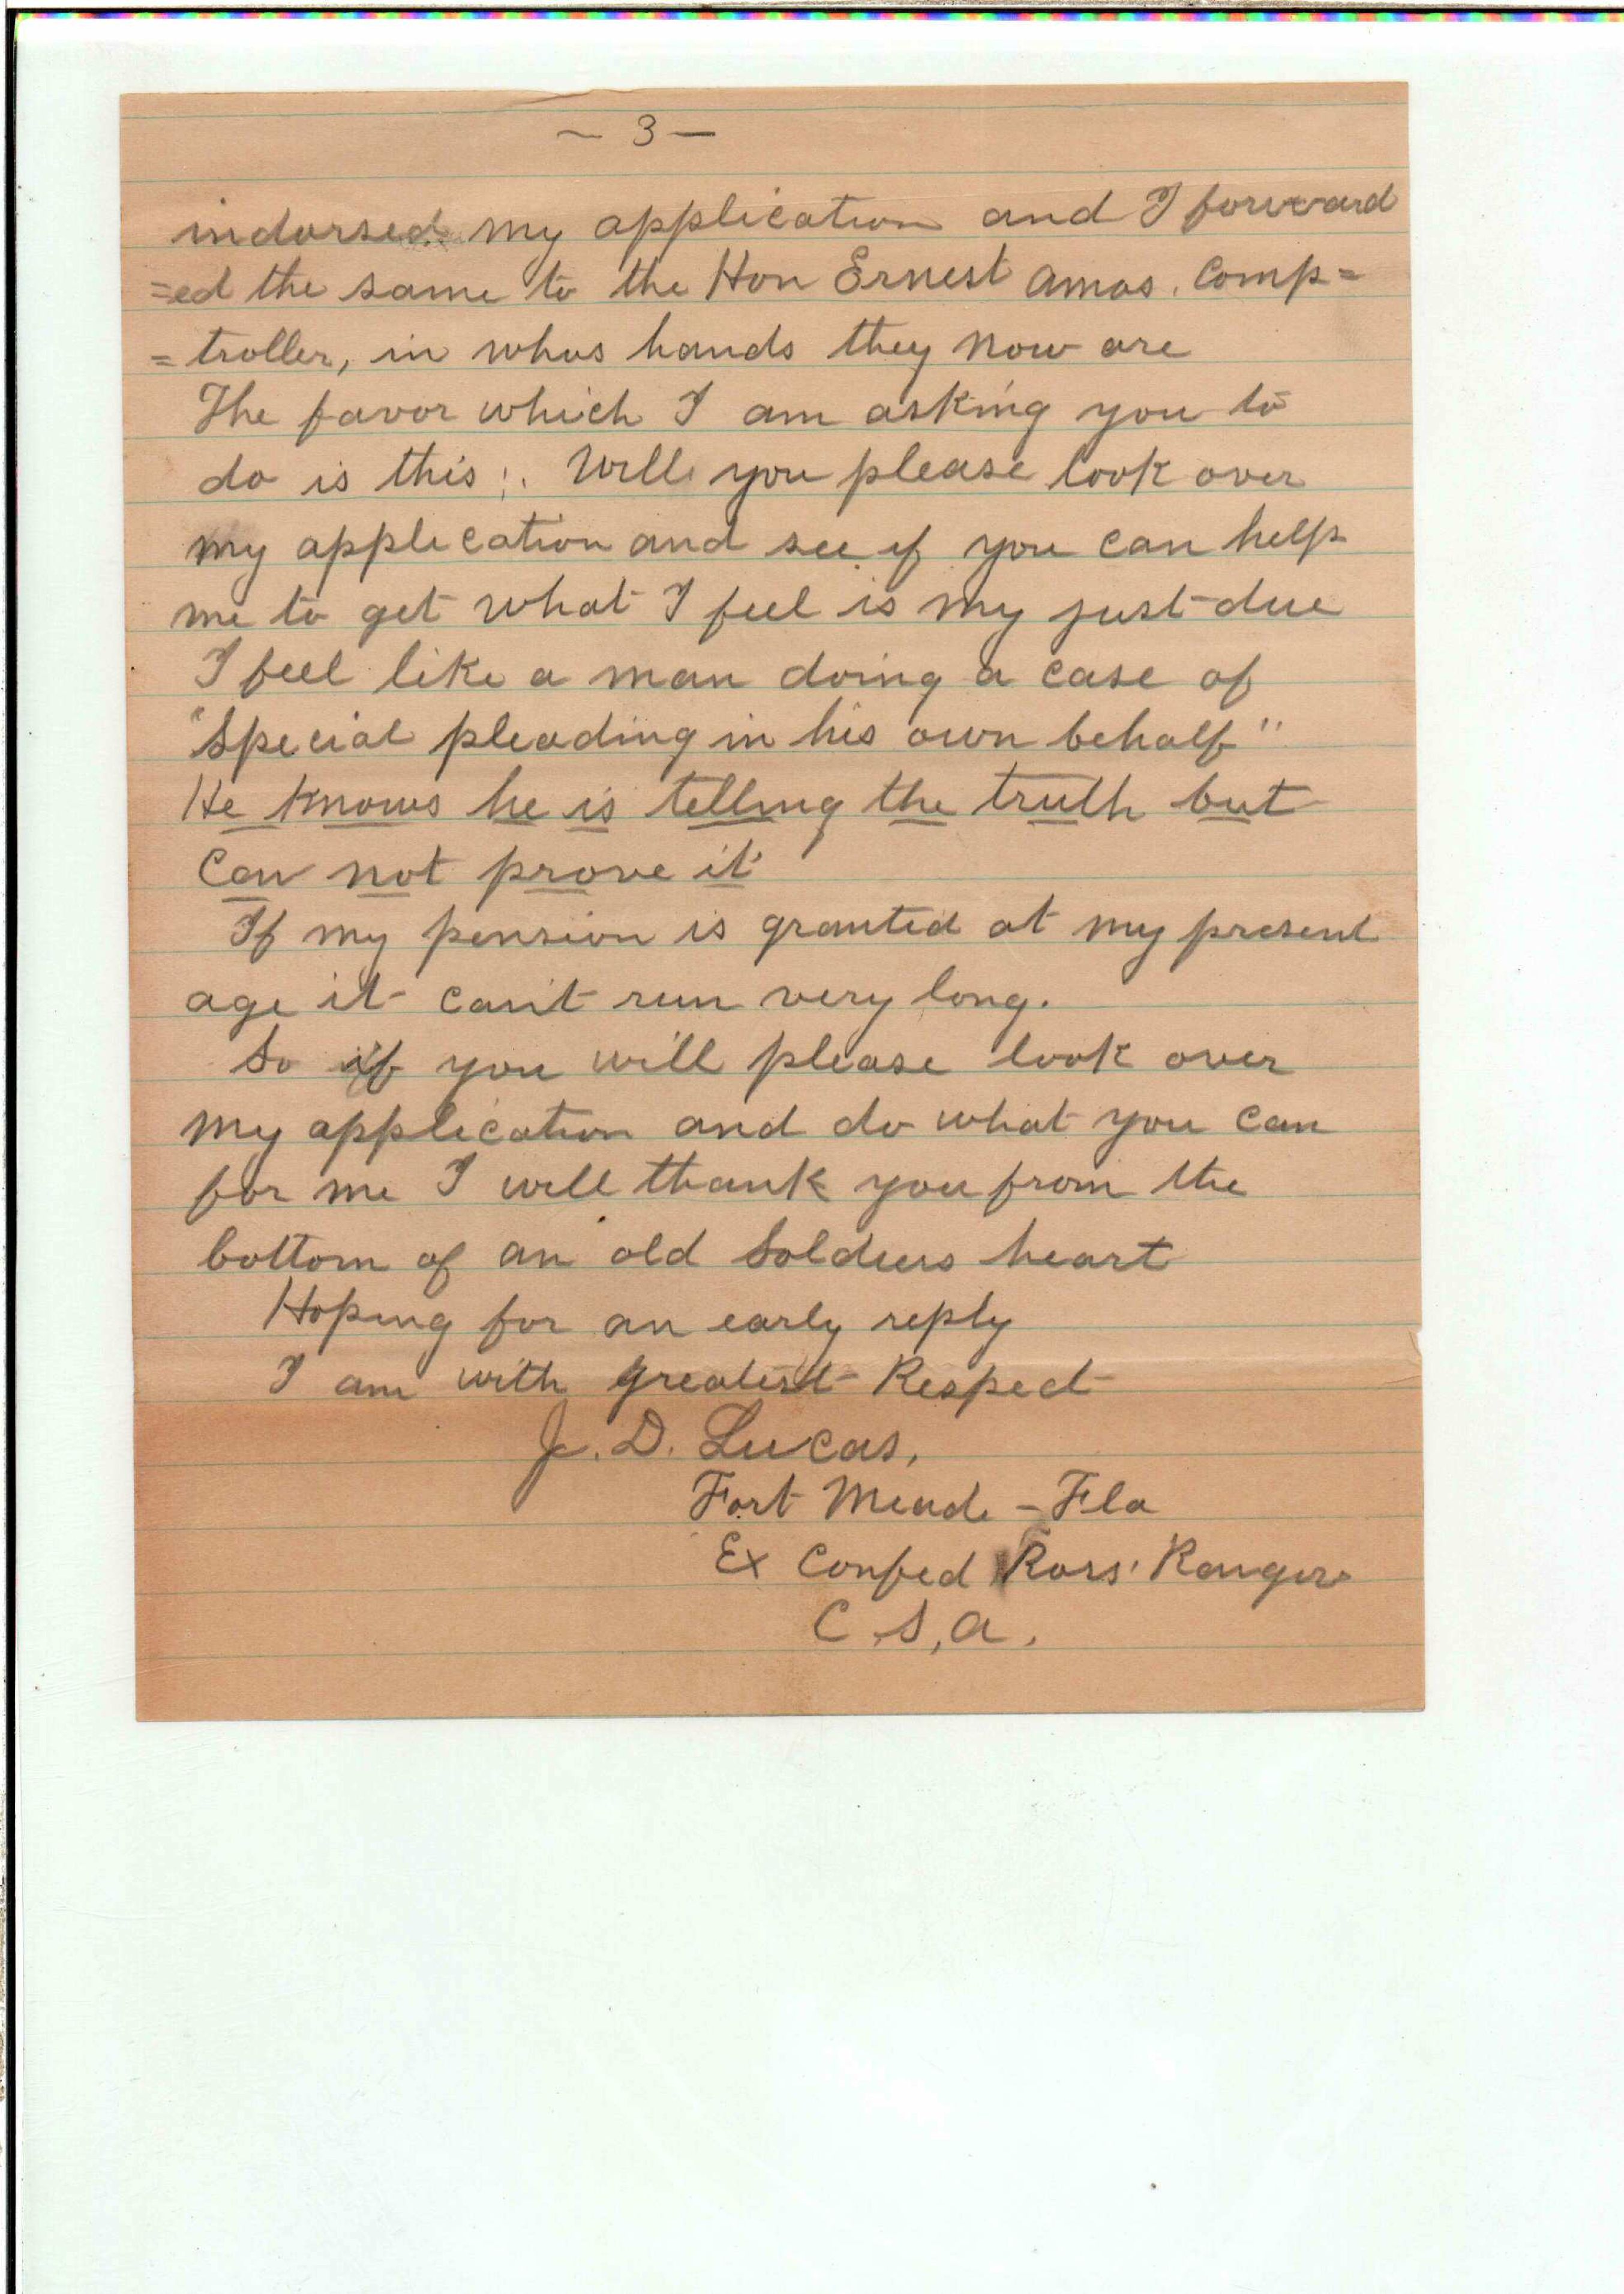 ~ 3 —
indorsed my application and I forward
=ed the same to the Hon Ernest Amos. Comp=
=troller, in whos hands they now are
The favor which I am asking you to
do is this:. Will you please look over
my application and see if you can help
me to get what I feel is my just due
I feel like a man doing a case of
"Special pleading in his own behalf"
He knows he is telling the truth but
can not prove it
If my pension is granted at my present
age it can't run very long.
So if you will please look over
my application and do what you can
for me I will thank you from the
bottom of an old Soldiers heart
Hoping for an early reply
I am with greatest Respect
J. D. Lucas,
Fort Meade - Fla
Ex Confed Ross' Rangers
C.S,A.